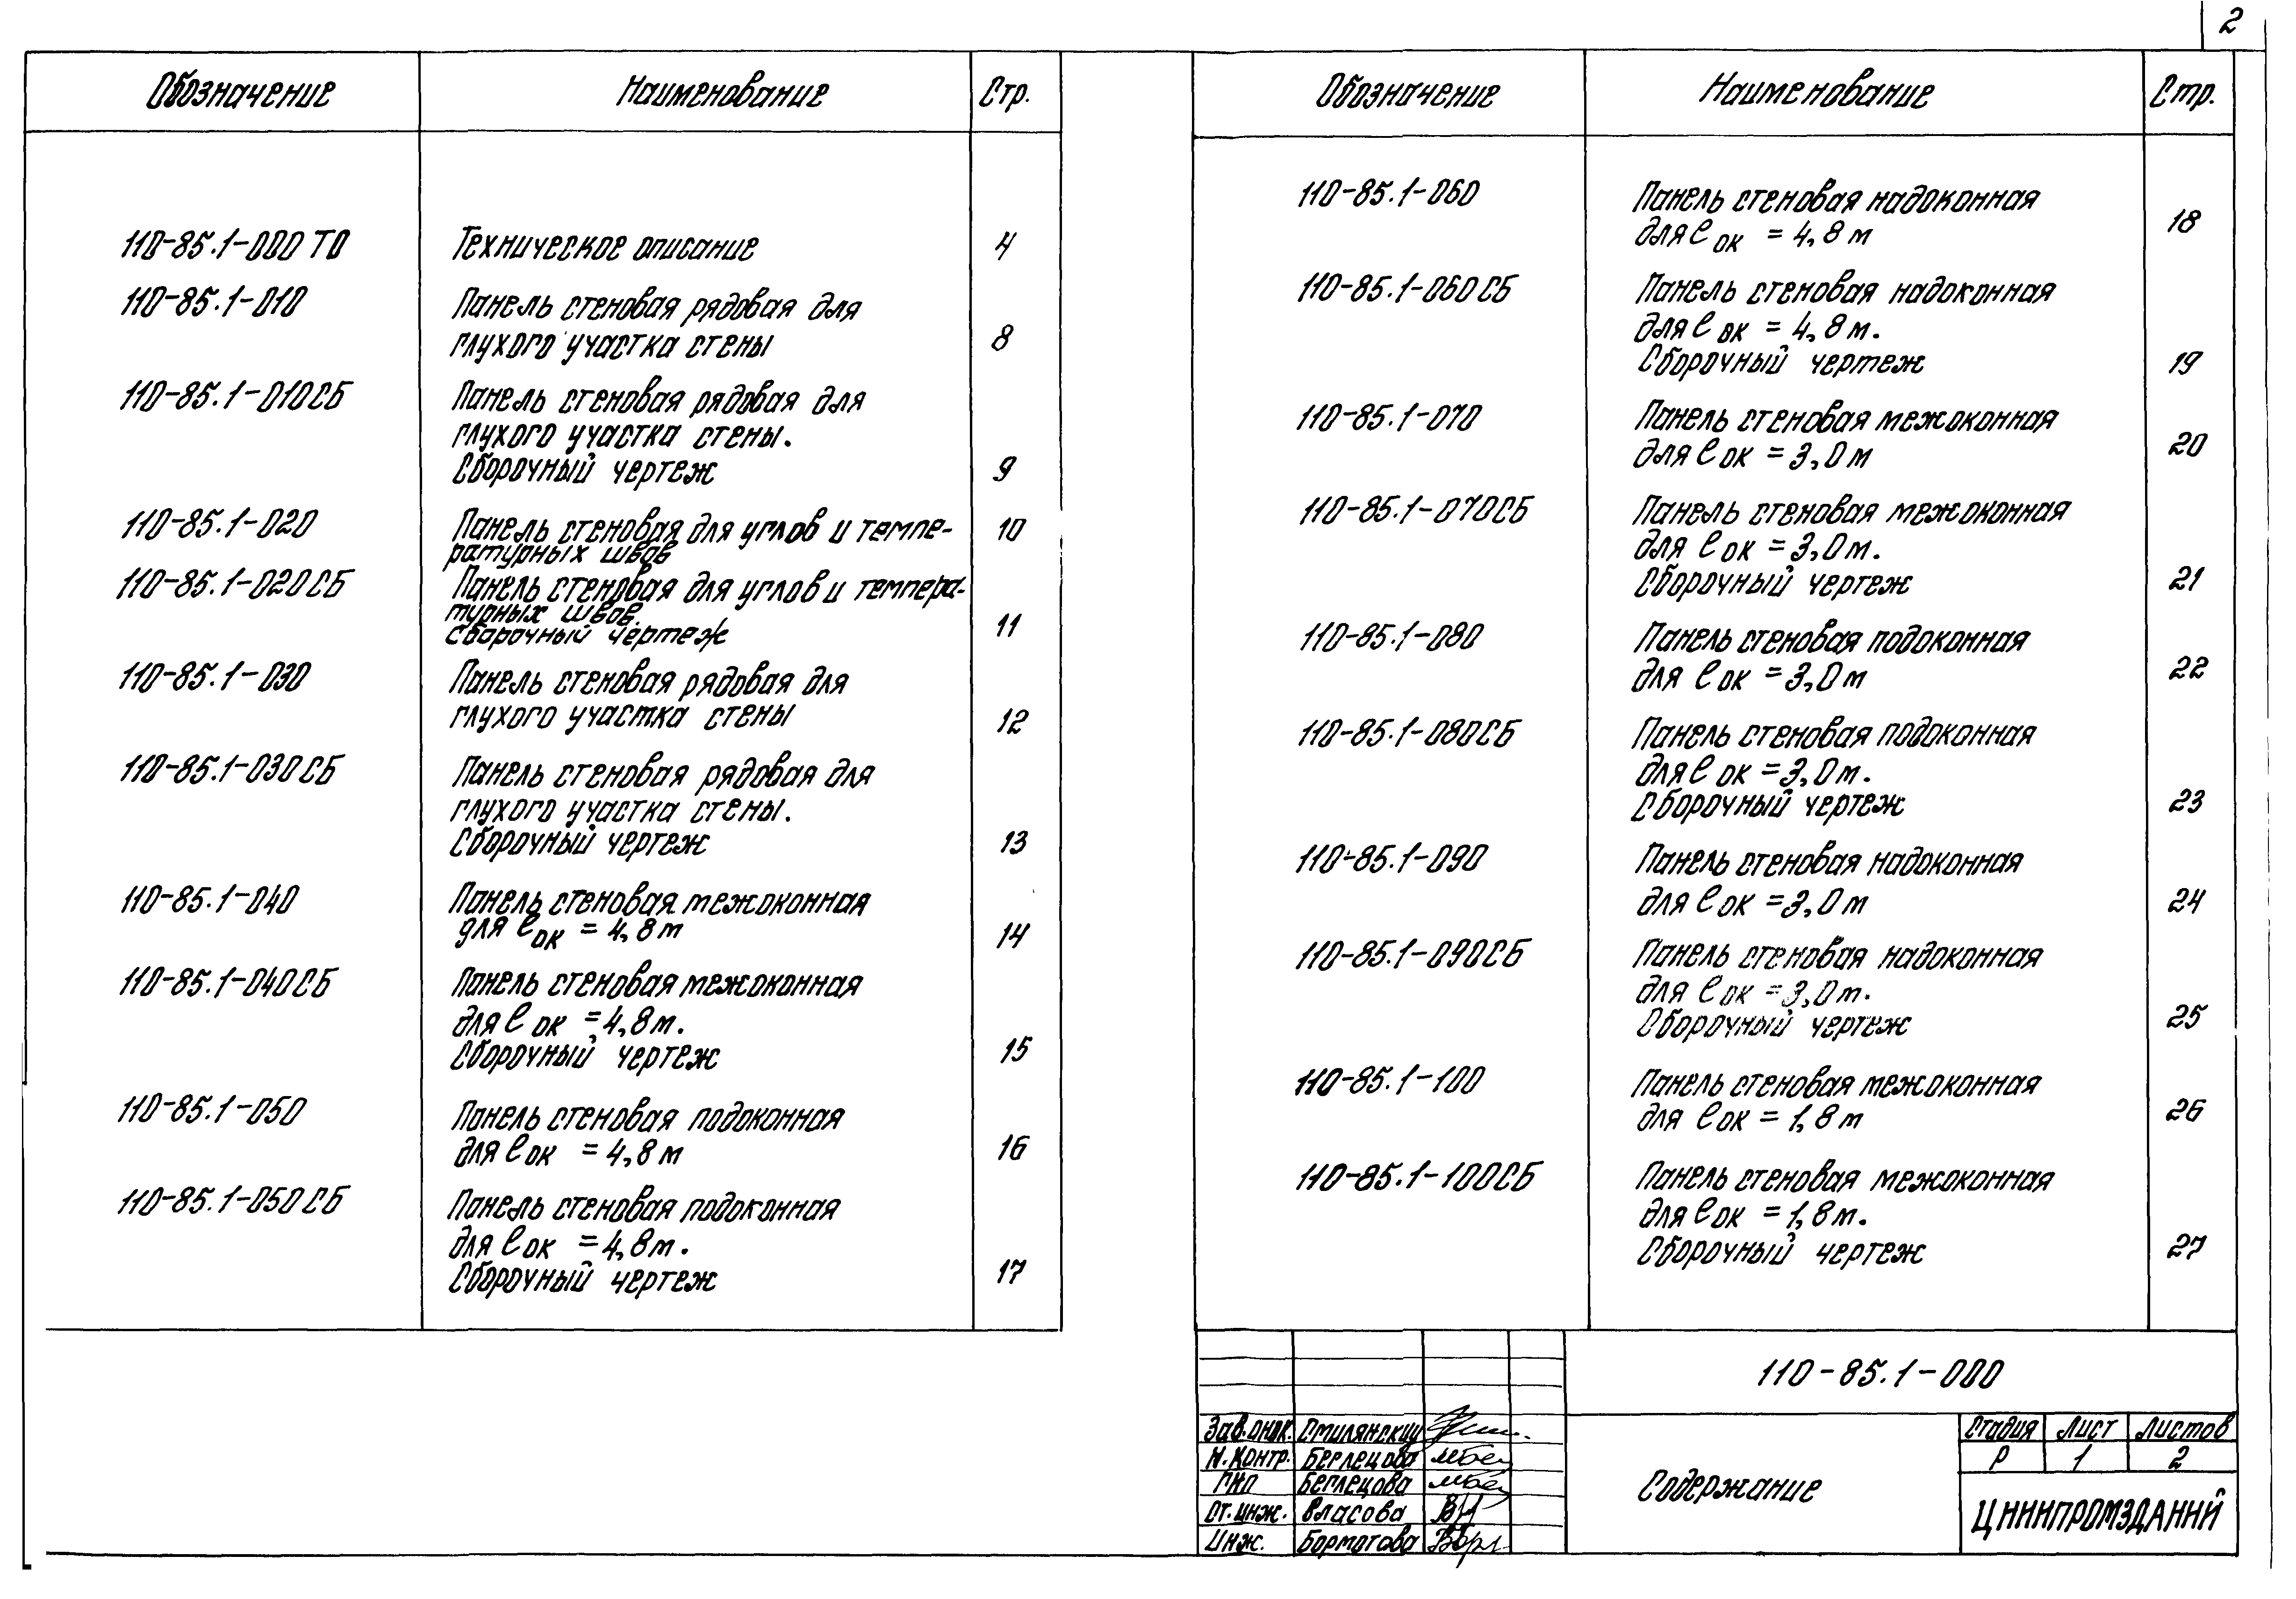 2
Обозначение Наименование Стр.
110-85.1-000 ТО Техническое описание 4
110-85.1-010 Панель стеновая рядовая для
глухого участка стены 8
110-85.1-010СБ Панель стеновая рядовая для
глухого участка стены.
Сборочный чертеж 9
110-85.1-020 Панель стеновая для углов и темпе- 10
ратурных швов
110-85.1-020СБ Панель стеновая для углов и темпера-
турных швов.
Сборочный чертеж 11
110-85.1-030 Панель стеновая рядовая для
глухого участка стены 12
110-85.1-030СБ Панель стеновая рядовая для
глухого участка стены.
Сборочный чертеж 13
110-85.1-040 Панель стеновая межоконная
для ℓок = 4,8 м 14
110-85.1-040СБ Панель стеновая межоконная
для ℓок = 4,8 м.
Сборочный чертеж 15
110-85.1-050 Панель стеновая подоконная
для ℓок = 4,8 м 16
110-85.1-050СБ Панель стеновая подоконная
для ℓок = 4,8 м.
Сборочный чертеж 17
Обозначение Наименование Стр.
110-85.1-060 Панель стеновая надоконная
для ℓок = 4,8 м 18
110-85.1-060СБ Панель стеновая надоконная
для ℓок = 4,8 м.
Сборочный чертеж 19
110-85.1-070 Панель стеновая межоконная
для ℓок = 3,0 м 20
110-85.1-070СБ Панель стеновая межоконная
для ℓок = 3,0 м.
Сборочный чертеж 21
110-85.1-080 Панель стеновая подоконная
для ℓок = 3,0 м 22
110-85.1-080СБ Панель стеновая подоконная
для ℓок = 3,0 м.
Сборочный чертеж 23
110-85.1-090 Панель стеновая надоконная
для ℓок = 3,0 м 24
110-85.1-090СБ Панель стеновая надоконная
для ℓок = 3,0 м.
Сборочный чертеж 25
110-85.1-100 Панель стеновая межоконная
для ℓок = 1,8 м 26
110-85.1-100СБ Панель стеновая межоконная
для ℓок = 1,8 м.
Сборочный чертеж 27
110-85.1-000
Зав. Смилянский
Н.Контр. Беглецова
ГИП Беглецова
Ст. инж. Власова
Инж. Бормотова
Содержание
Стадия Лист Листов
Р 1 2
ЦНИИПРОМЗДАНИЙ